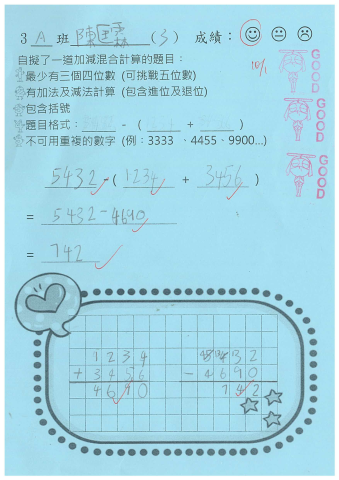 3 A 班 陳 霖 (3) 成績：
10/1
自擬了一道加減混合計算的題目：
最少有三個四位數 (可挑戰五位數)
有加法及減法計算 (包含進位及退位)
包含括號
題目格式： - ( + )
不可用重複的數字 (例：3333 、4455、9900...)
GOOD
GOOD
GOOD
5432 - ( 1234 + 3456 )
= 5432 - 4690
= 742
1234
+ 3456
4690
5432
- 4690
742